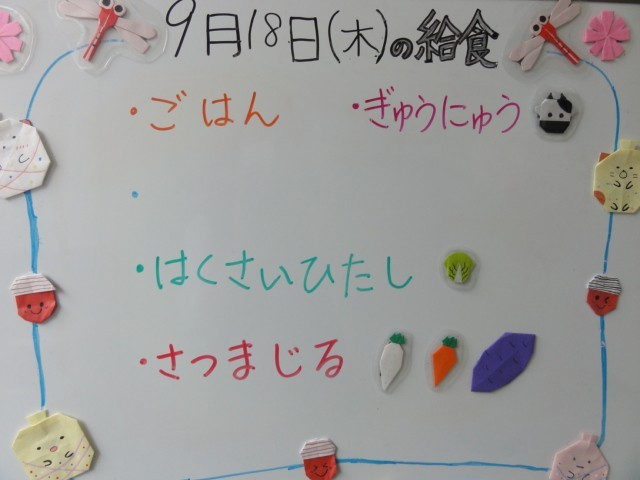 9月18日(木)の給食
・ごはん ・ぎゅうにゅう
・
・はくさいひたし
・さつまじる